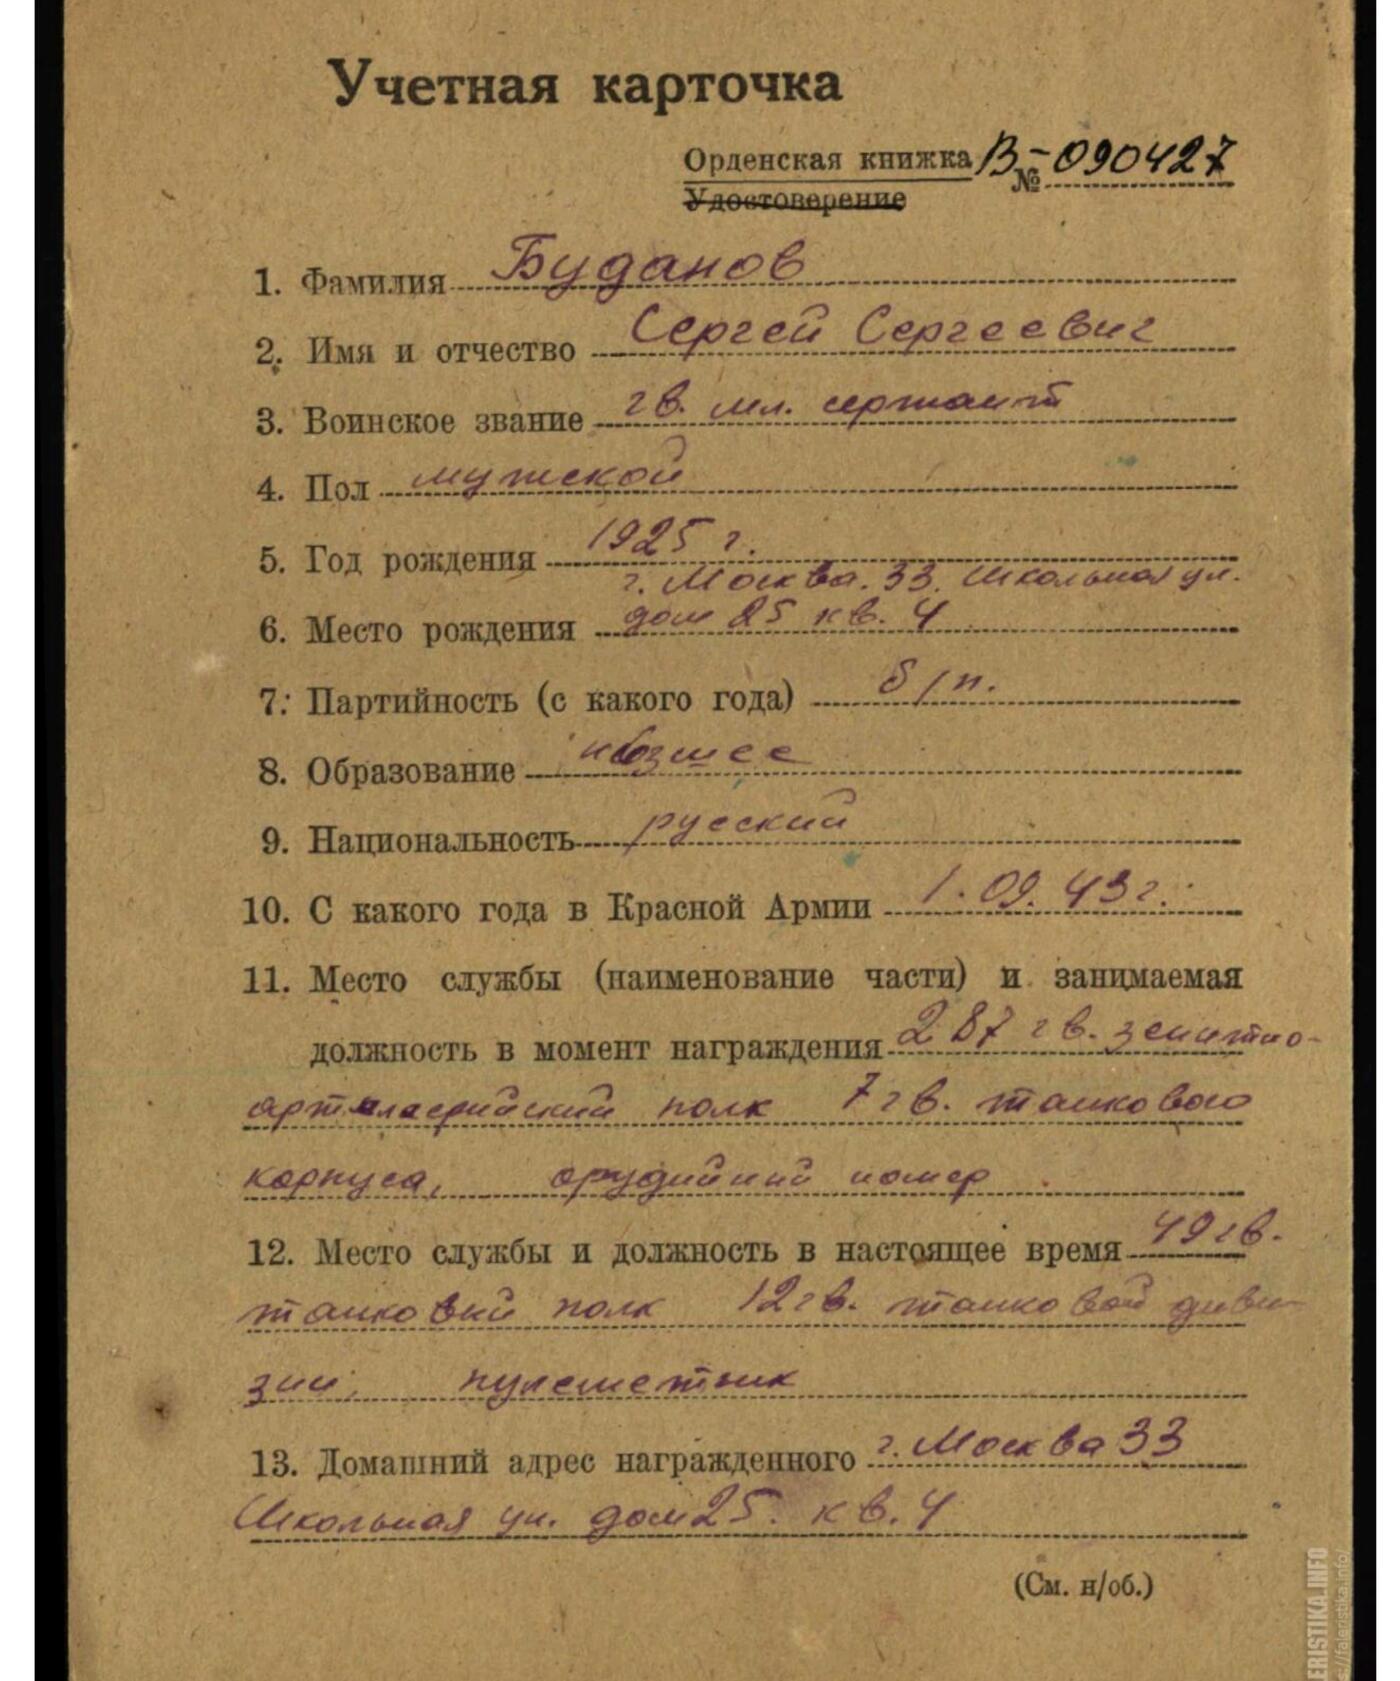 Учетная карточка
Орденская книжка В-№ 090427
Удостоверение
1. Фамилия Буданов
2. Имя и отчество Сергей Сергеевич
3. Воинское звание гв. мл. сержант
4. Пол мужской
5. Год рождения 1925 г.
г. Москва. 33. Школьная ул.
6. Место рождения дом 25 кв. 4
7. Партийность (с какого года) б/п.
8. Образование
9. Национальность русский
10. С какого года в Красной Армии 1.09.43г.
11. Место службы (наименование части) и занимаемая
должность в момент награждения 287 гв. зенитно-
артиллерийский полк 7 гв. танкового
корпуса, орудийный номер
12. Место службы и должность в настоящее время 49 гв.
танковый полк 12 гв. танковой диви-
зии, пулеметчик
13. Домашний адрес награжденного г. Москва 33
Школьная ул. дом 25. кв. 4
(См. н/об.)
ERISTIKA.INFO
s://faleristika.info/